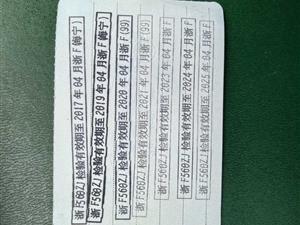 浙F560ZJ检验有效期至2017年04月浙F(海宁)
浙F560ZJ检验有效期至2019年04月浙F(海宁)
浙F560ZJ检验有效期至2020年04月浙F(99)
浙F560ZJ检验有效期至2021年04月浙F(99)
浙F560ZJ检验有效期至2023年04月浙F
浙F560ZJ检验有效期至2024年04月浙F
浙F560ZJ检验有效期至2025年04月浙F